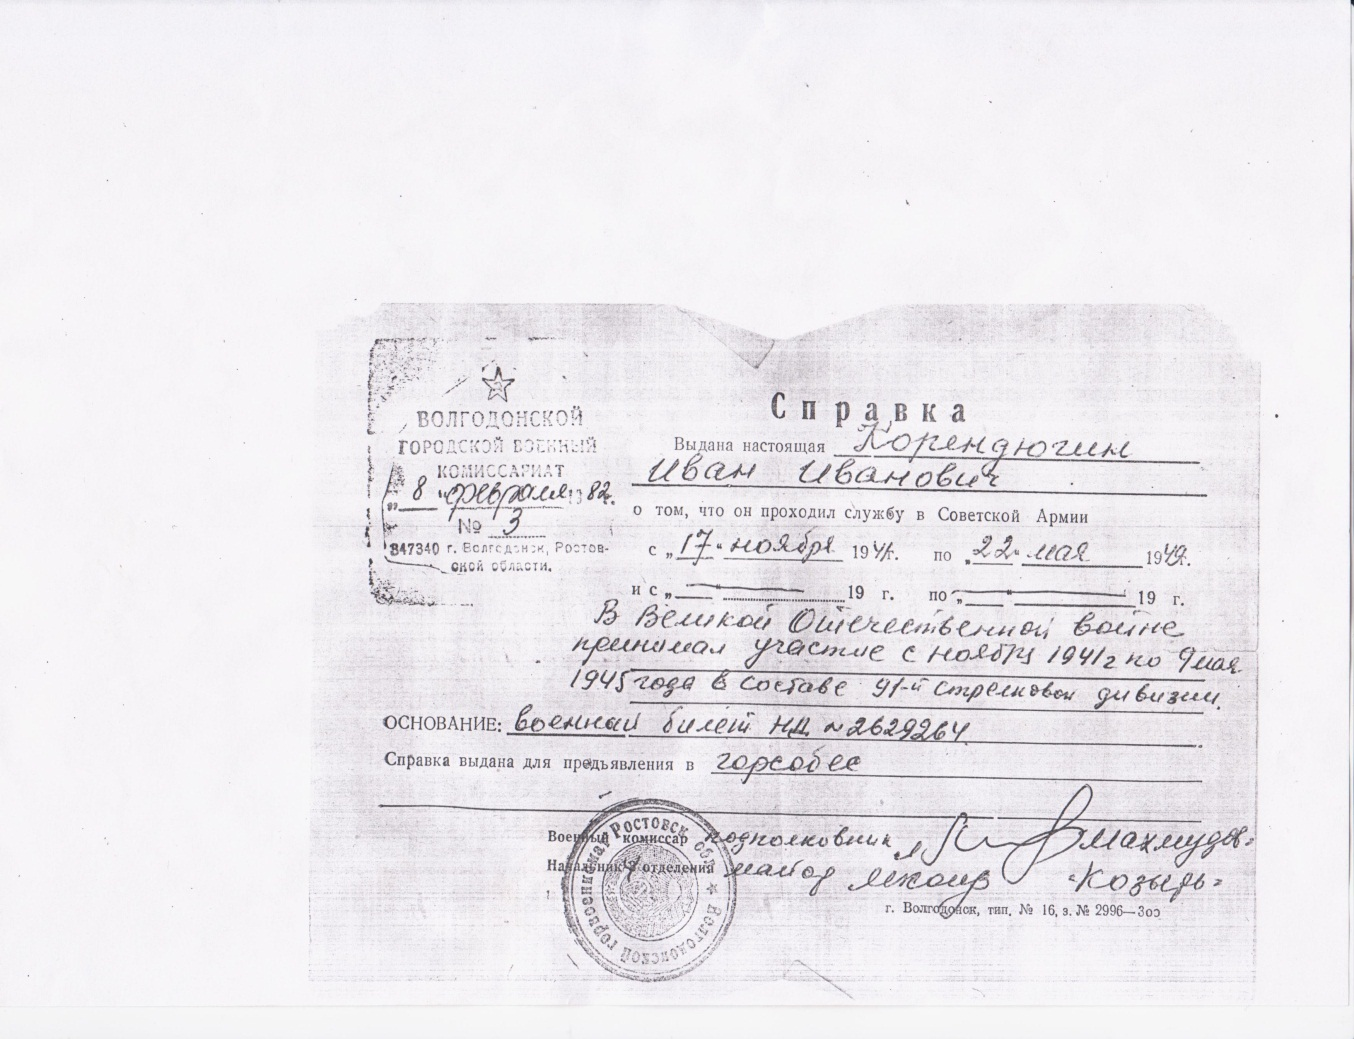 ВОЛГОДОНСКОЙ
ГОРОДСКОЙ ВОЕННЫЙ
КОМИССАРИАТ
„8 “ февраля 1982г.
№ 3
347340 г. Волгодонск, Ростов-
ской области.
Справка
Выдана настоящая Корендюгин
Иван Иванович
о том, что он проходил службу в Советской Армии
с „17“ ноября 1941г. по „22“ мая 1949г.
и с „ “ 19 г. по „ “ 19 г.
В Великой Отечественной войне
принимал участие с ноября 1941г по 9 мая
1945 года в составе 91-й стрелковой дивизии.
ОСНОВАНИЕ: военный билет НД №2629264
Справка выдана для предъявления в горсобес
Военный комиссар подполковник «Махмудов»
Начальник 4 отделения майор «Козырь»
г. Волгодонск, тип, № 16, з. № 2996—300
Волгодонской горвоенкомат Ростовск обл